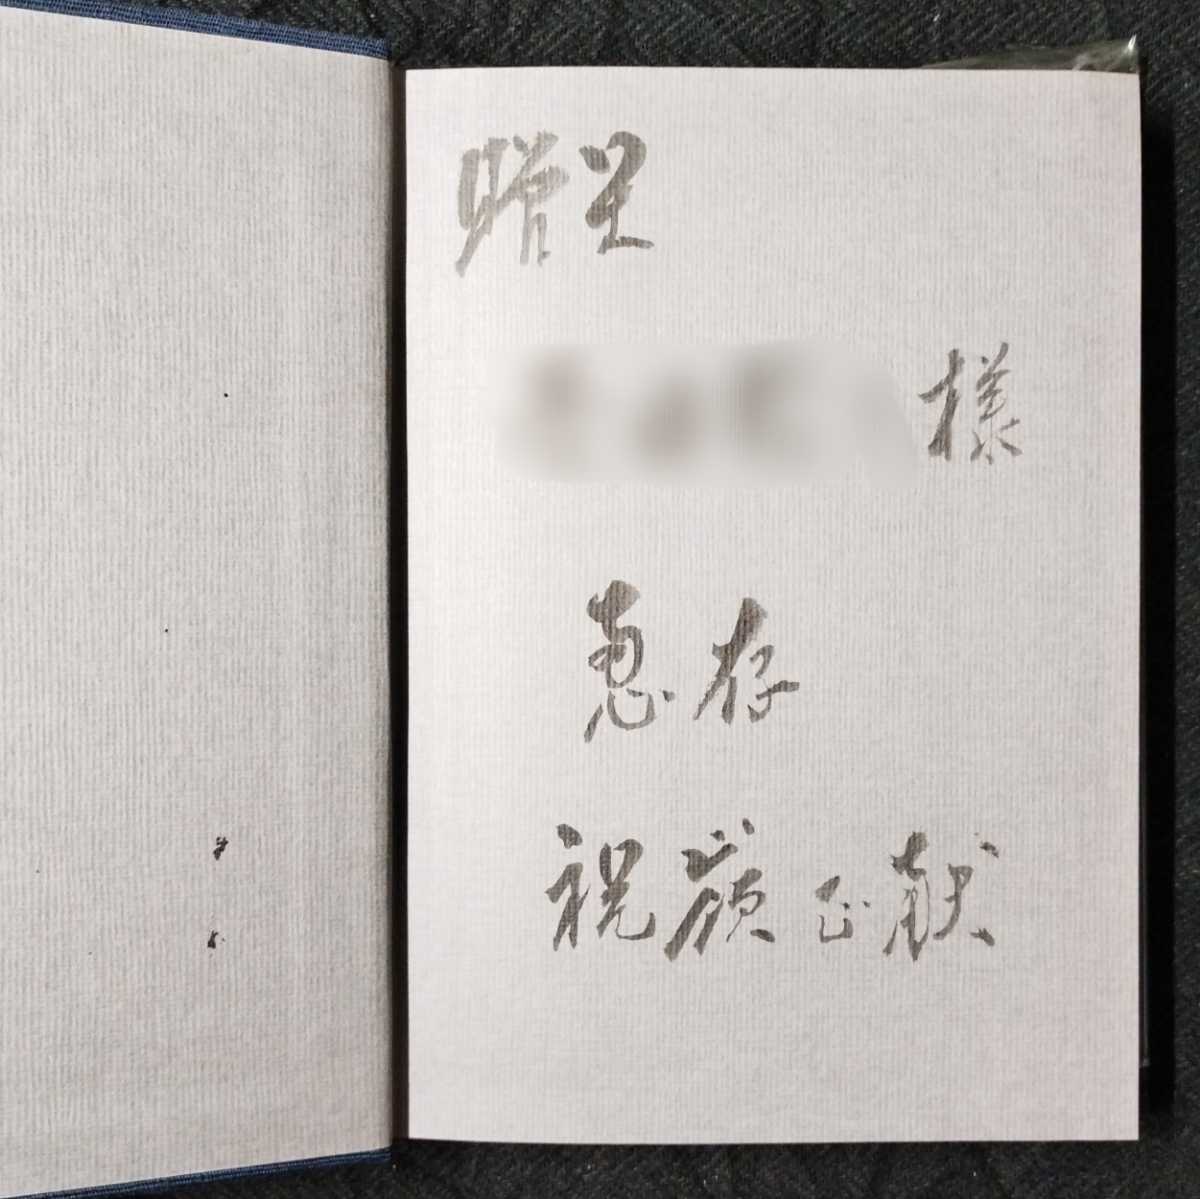 贈呈
様
恵存
祝嶺正献